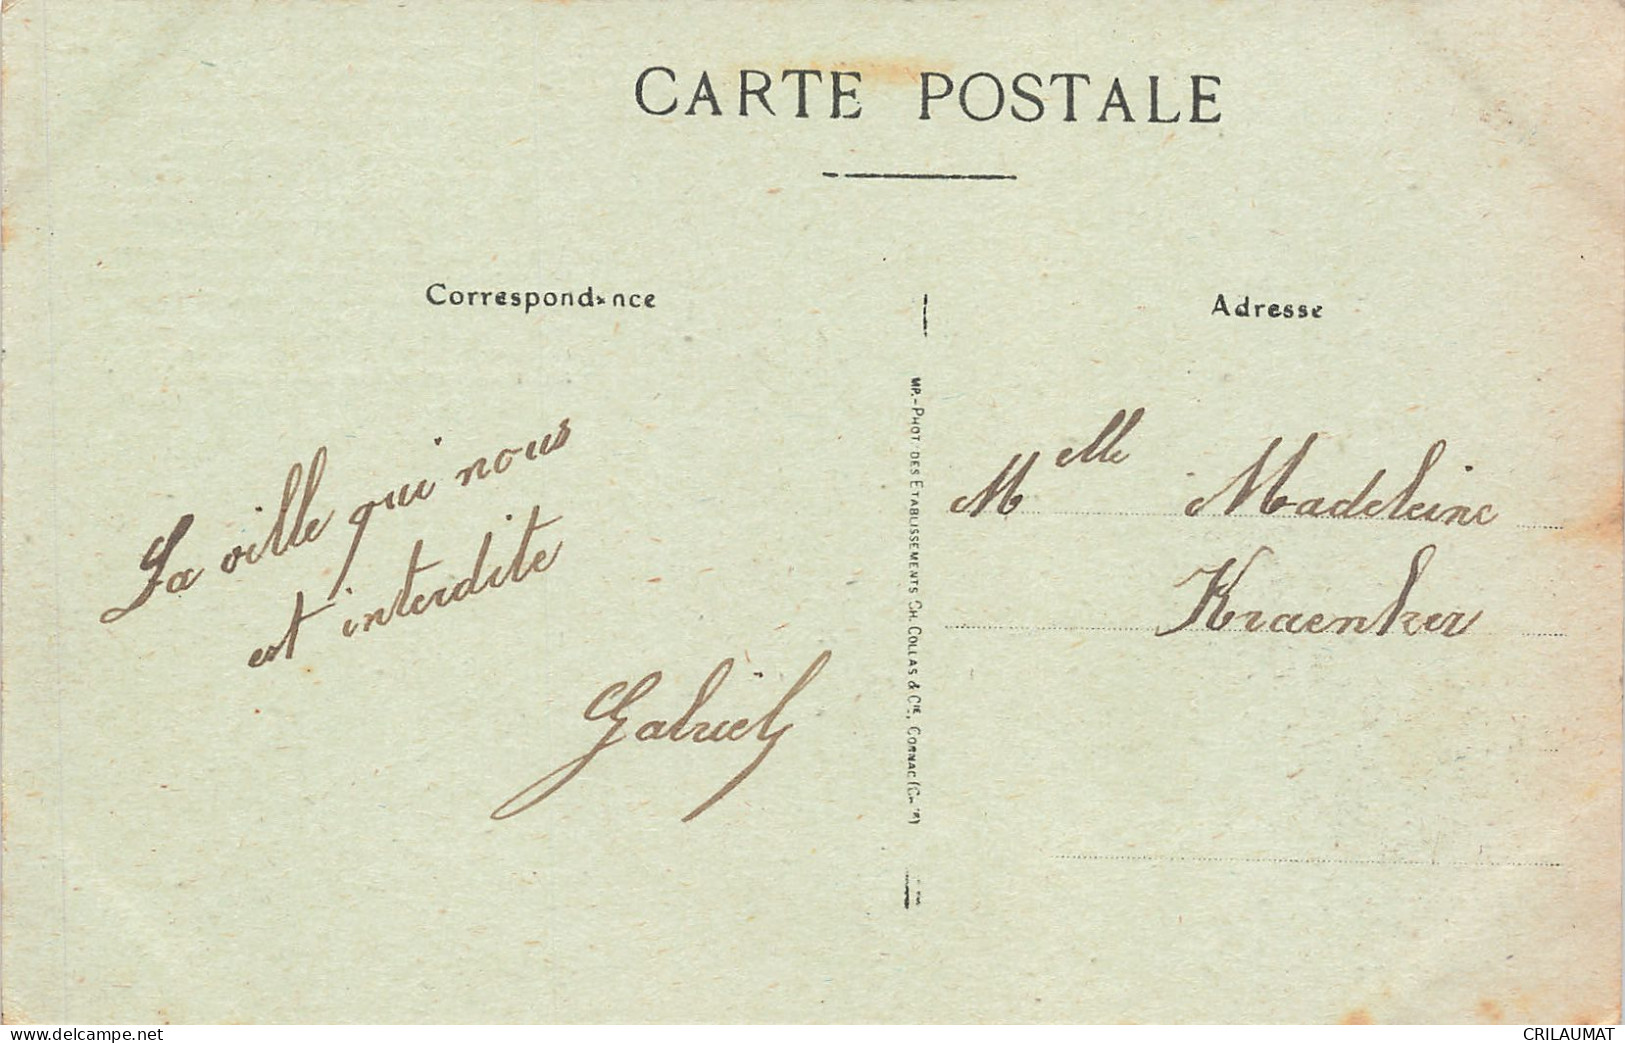 CARTE POSTALE
Correspondance
La ville qui nous
est interdite
Gabriel
MP.-PHOT DES ETABLISSEMENTS CH. COLLAS & CIE, COGNAC
Adresse
Melle Madeleine
Kraenker
www.delcampe.net
CRILAUMAT